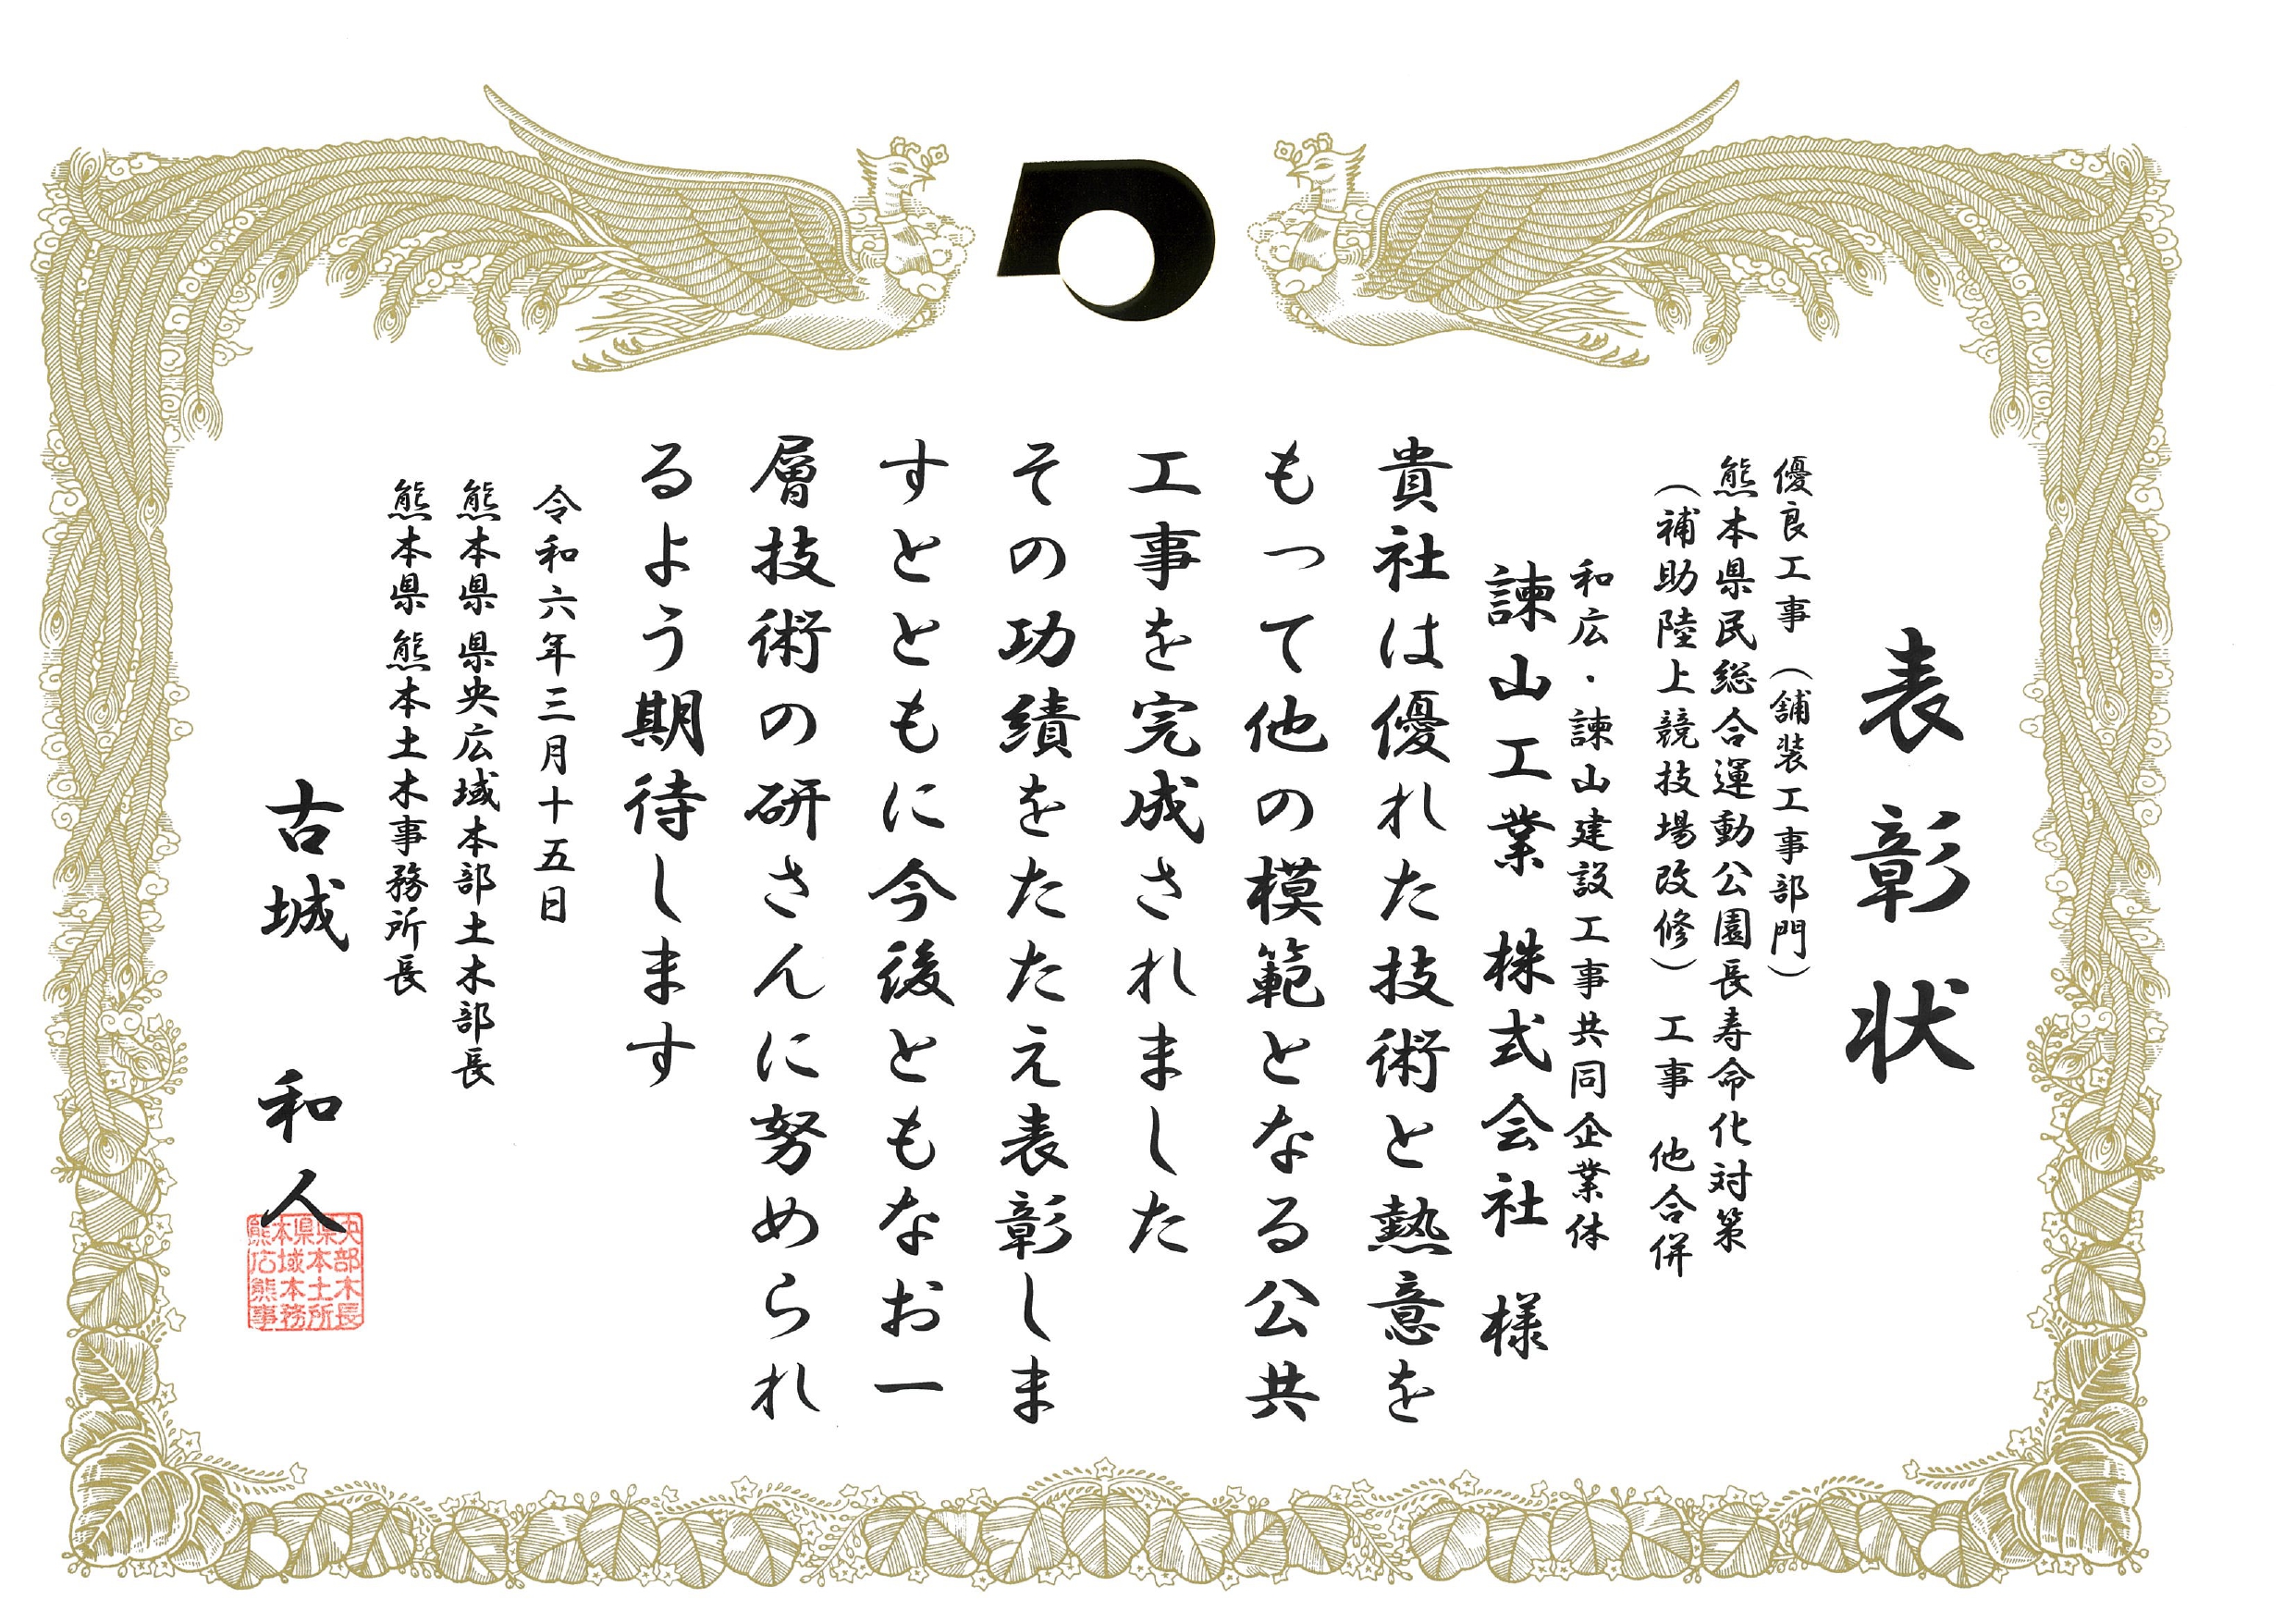 表彰状
優良工事（舗装工事部門）
熊本県民総合運動公園長寿命化対策
（補助陸上競技場改修）工事 他合併
和広・諫山建設工事共同企業体
諫山工業 株式会社 様
貴社は優れた技術と熱意を
もって他の模範となる公共
工事を完成されました
その功績をたたえ表彰しま
すとともに今後ともなお一
層技術の研さんに努められ
るよう期待します
令和六年三月十五日
熊本県 県央広域本部土木部長
熊本県 熊本土木事務所長
古城 和人
熊本県県央
広域本部
熊本土木
事務所長